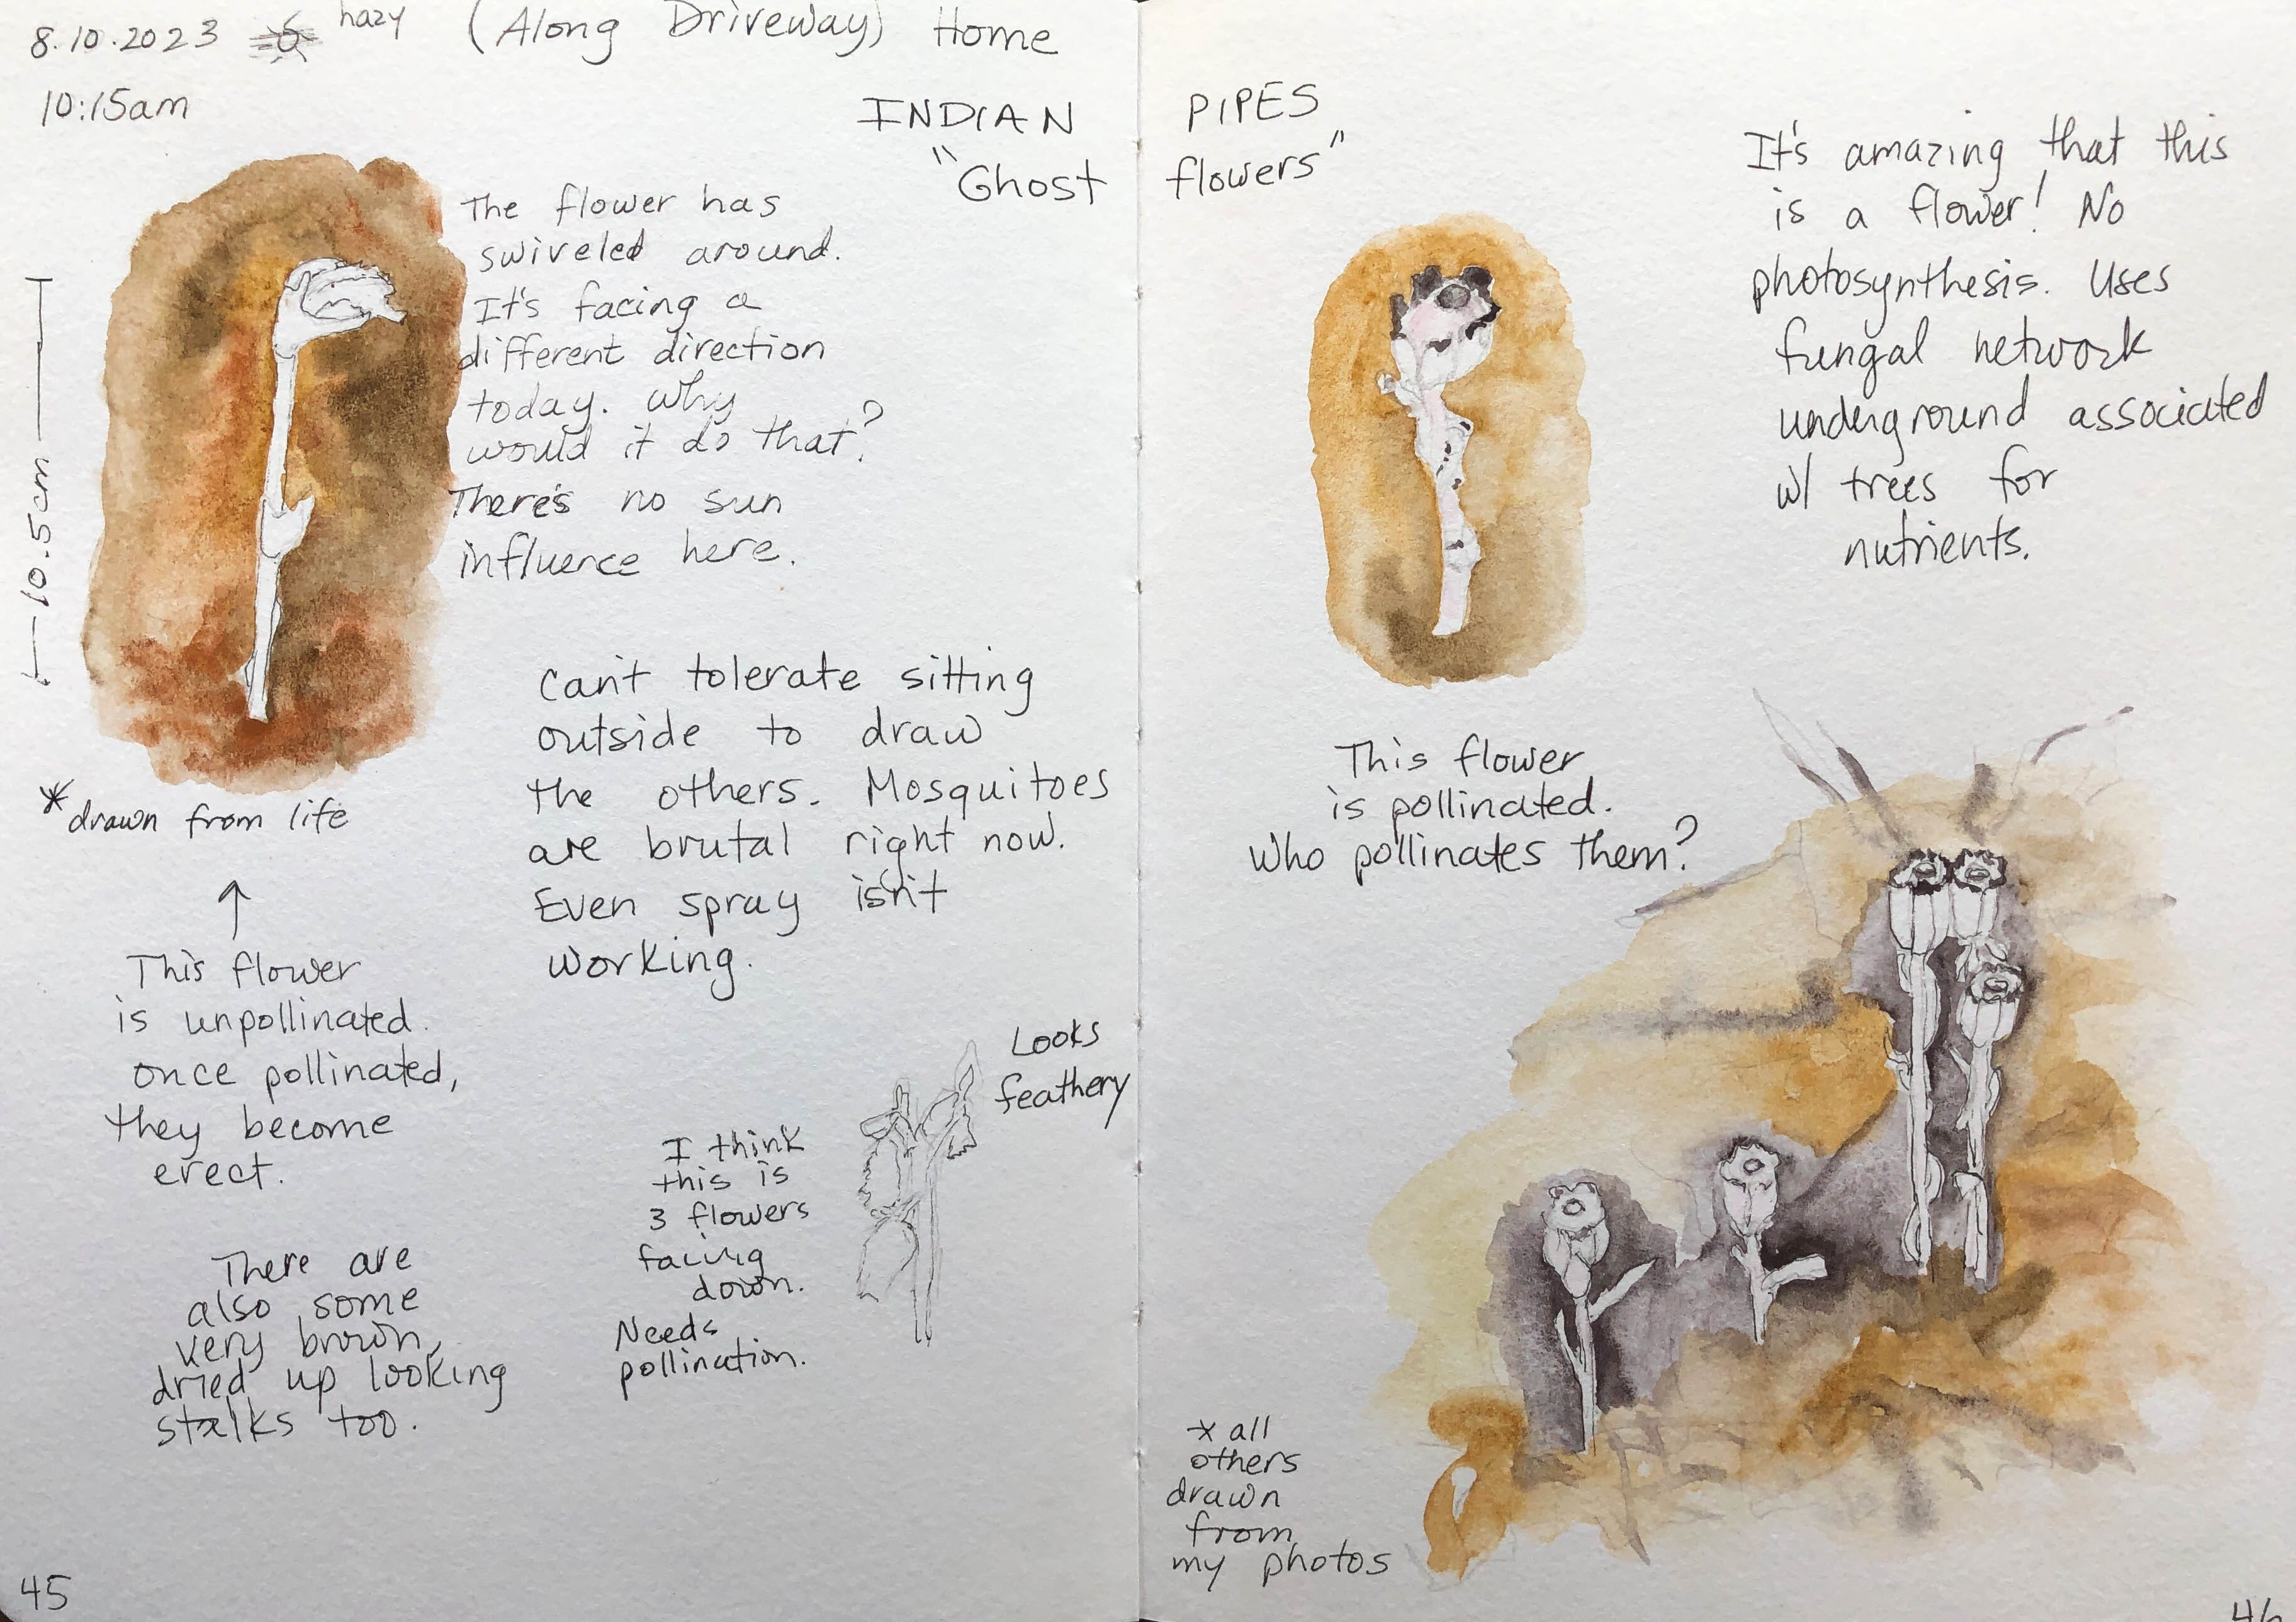 8.10.2023 hazy (Along Driveway) Home
10:15am
INDIAN PIPES
"Ghost flowers"
The flower has
swiveled around.
It's facing a
different direction
today. Why
would it do that?
There's no sun
influence here.
10.5cm
*drawn from life
↑
This flower
is unpollinated.
once pollinated,
they become
erect.
There are
also some
very brown,
dried up looking
stalks too.
Can't tolerate sitting
outside to draw
the others. Mosquitoes
are brutal right now.
Even spray isn't
working.
Looks
feathery
I think
this is
3 flowers
facing
down.
Needs
pollination.
45
It's amazing that this
is a flower! No
photosynthesis. Uses
fungal network
underground associated
w/ trees for
nutrients.
This flower
is pollinated.
Who pollinates them?
* all
others
drawn
from
my photos
46